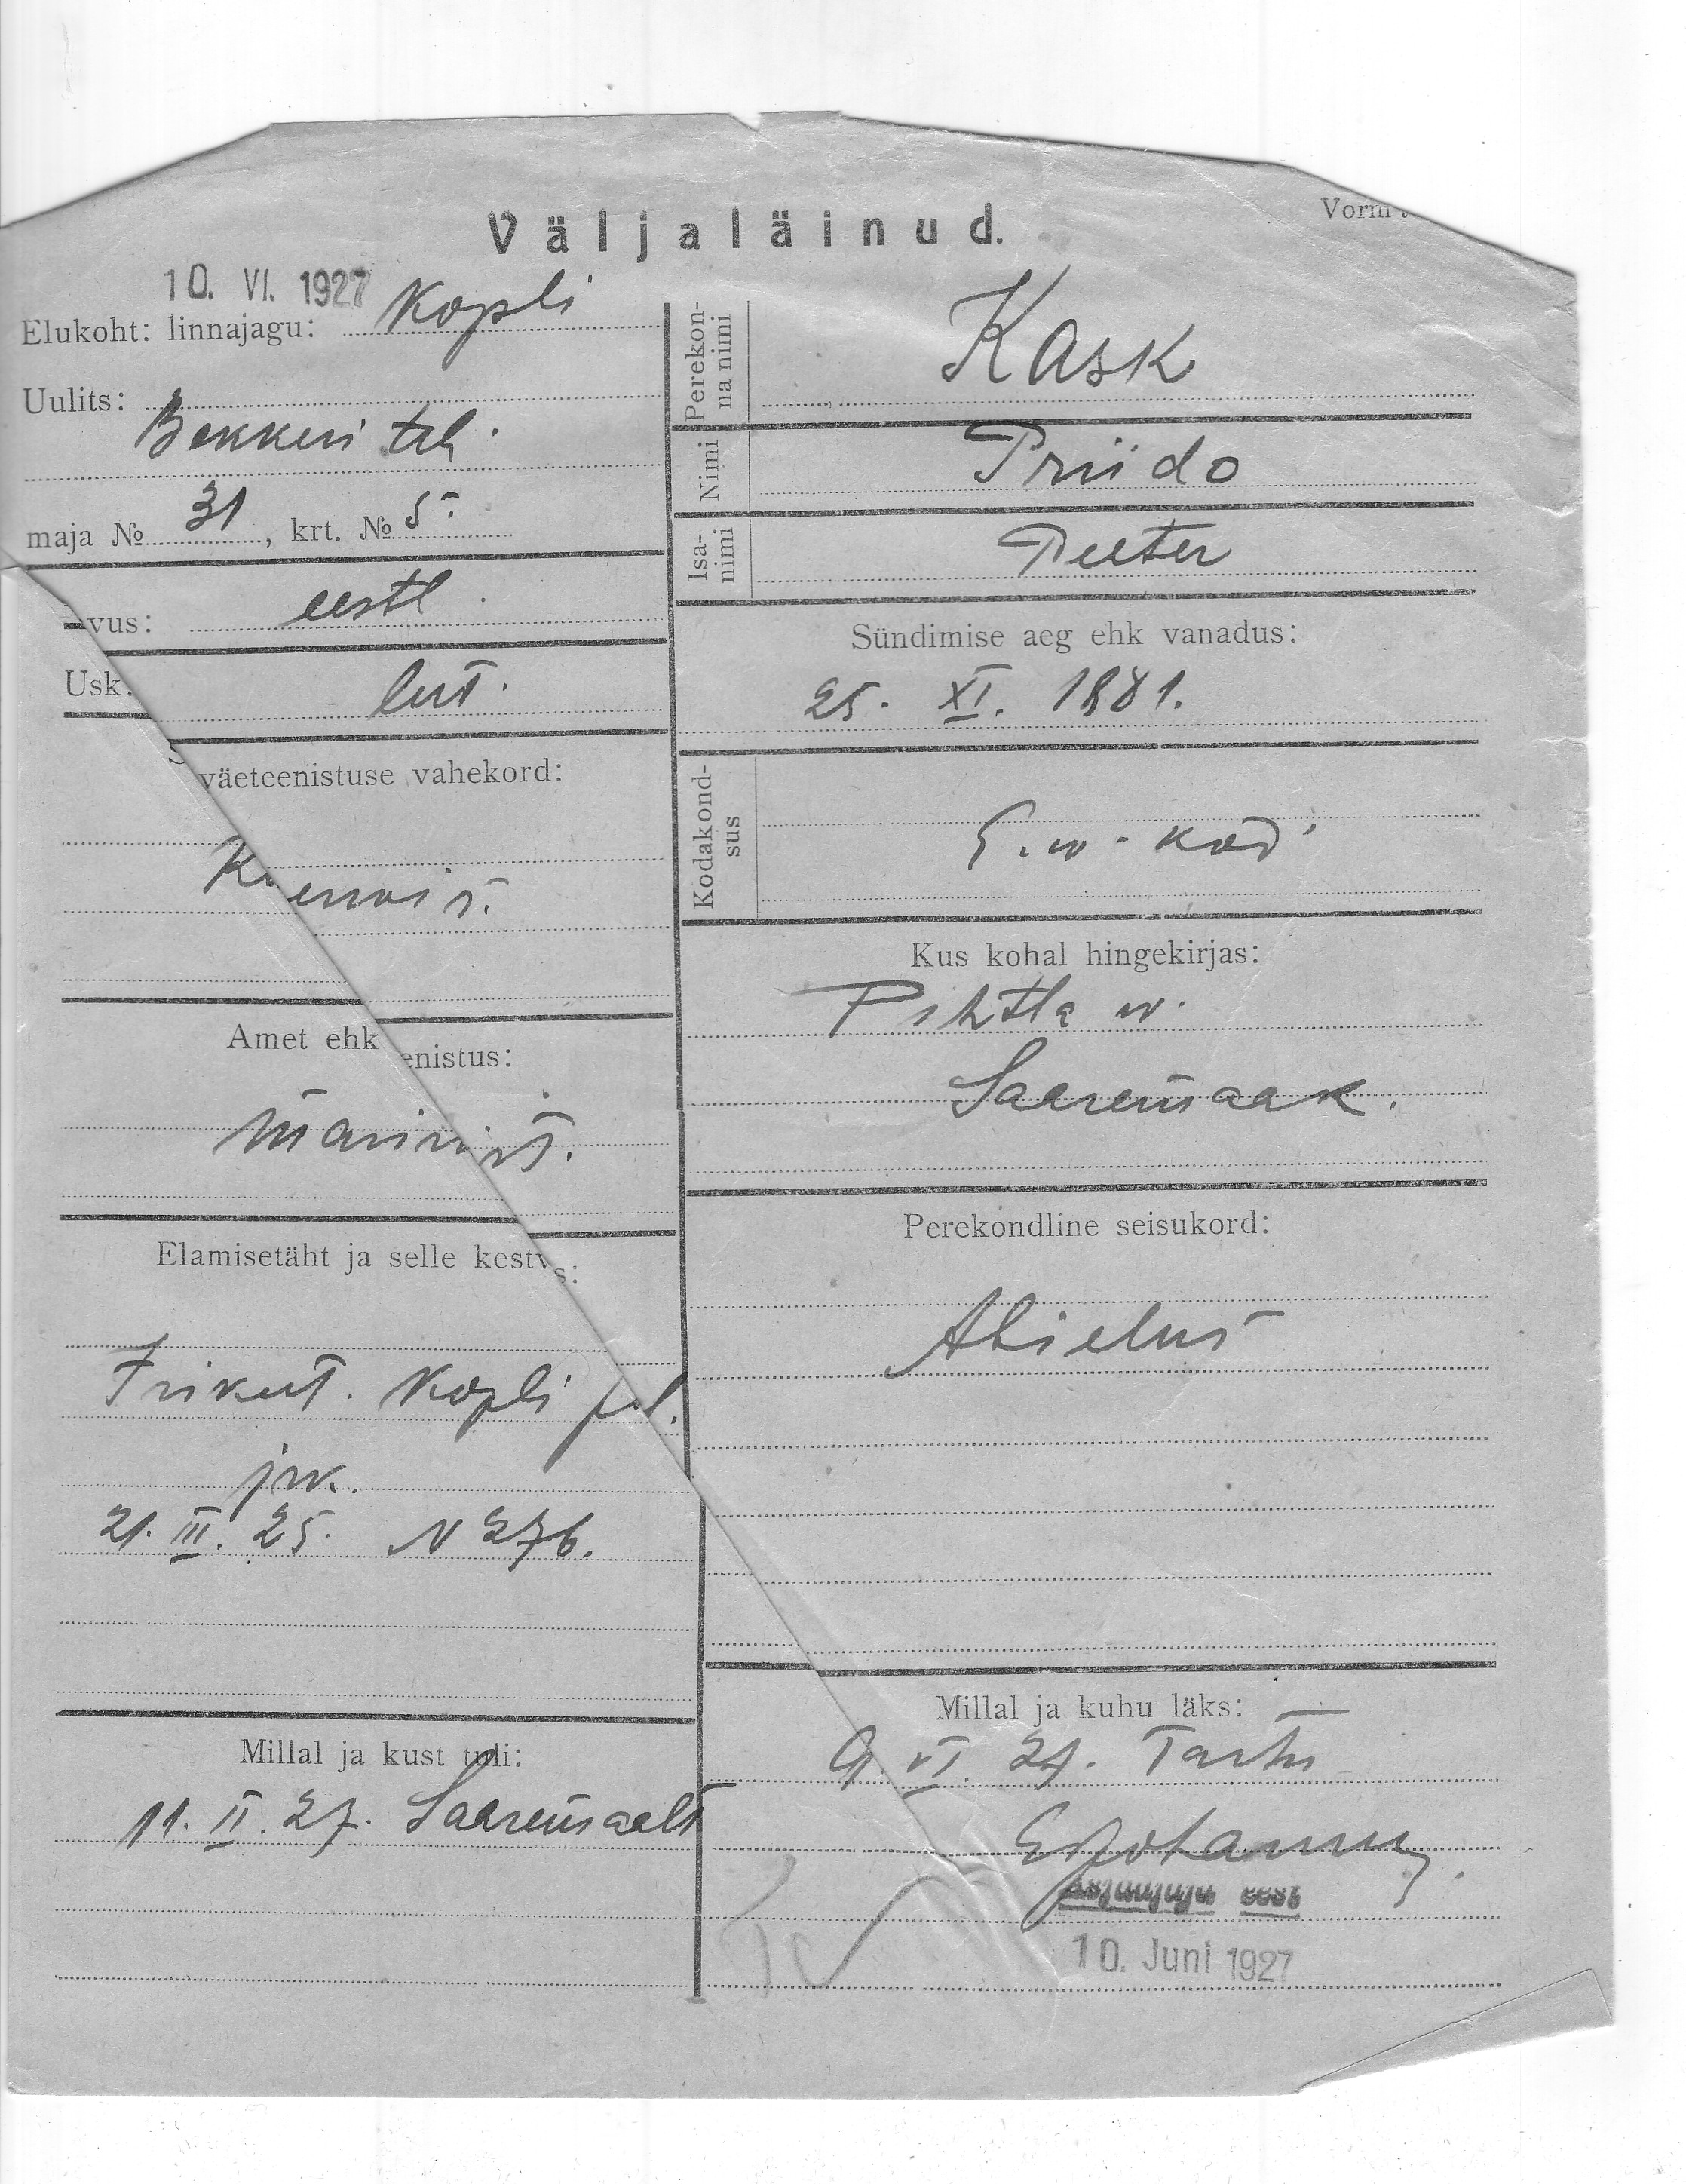 Vorm
Väljaläinud.
10. VI. 1927
Elukoht: linnajagu: Kopli
Uulits:
Bekkeri teh.
maja № 31, krt. № 5.
vus: eestl.
Usk. lut.
väeteenistuse vahekord:
Amet ehk enistus:
Elamisetäht ja selle kestvs:
Kopli
jrk.
21. III. 25. N 276.
Millal ja kust tuli:
11. II. 27. Saaremaalt
Perekonna nimi
Kask
Nimi
Priido
Isanimi
Peeter
Sündimise aeg ehk vanadus:
25. XI. 1881.
Kodakondsus
E.w. kod.
Kus kohal hingekirjas:
Pihtla w.
Saaremaa k.
Perekondline seisukord:
Abielus
Millal ja kuhu läks:
9 VI. 27. Tartu
eest
10. Juni 1927